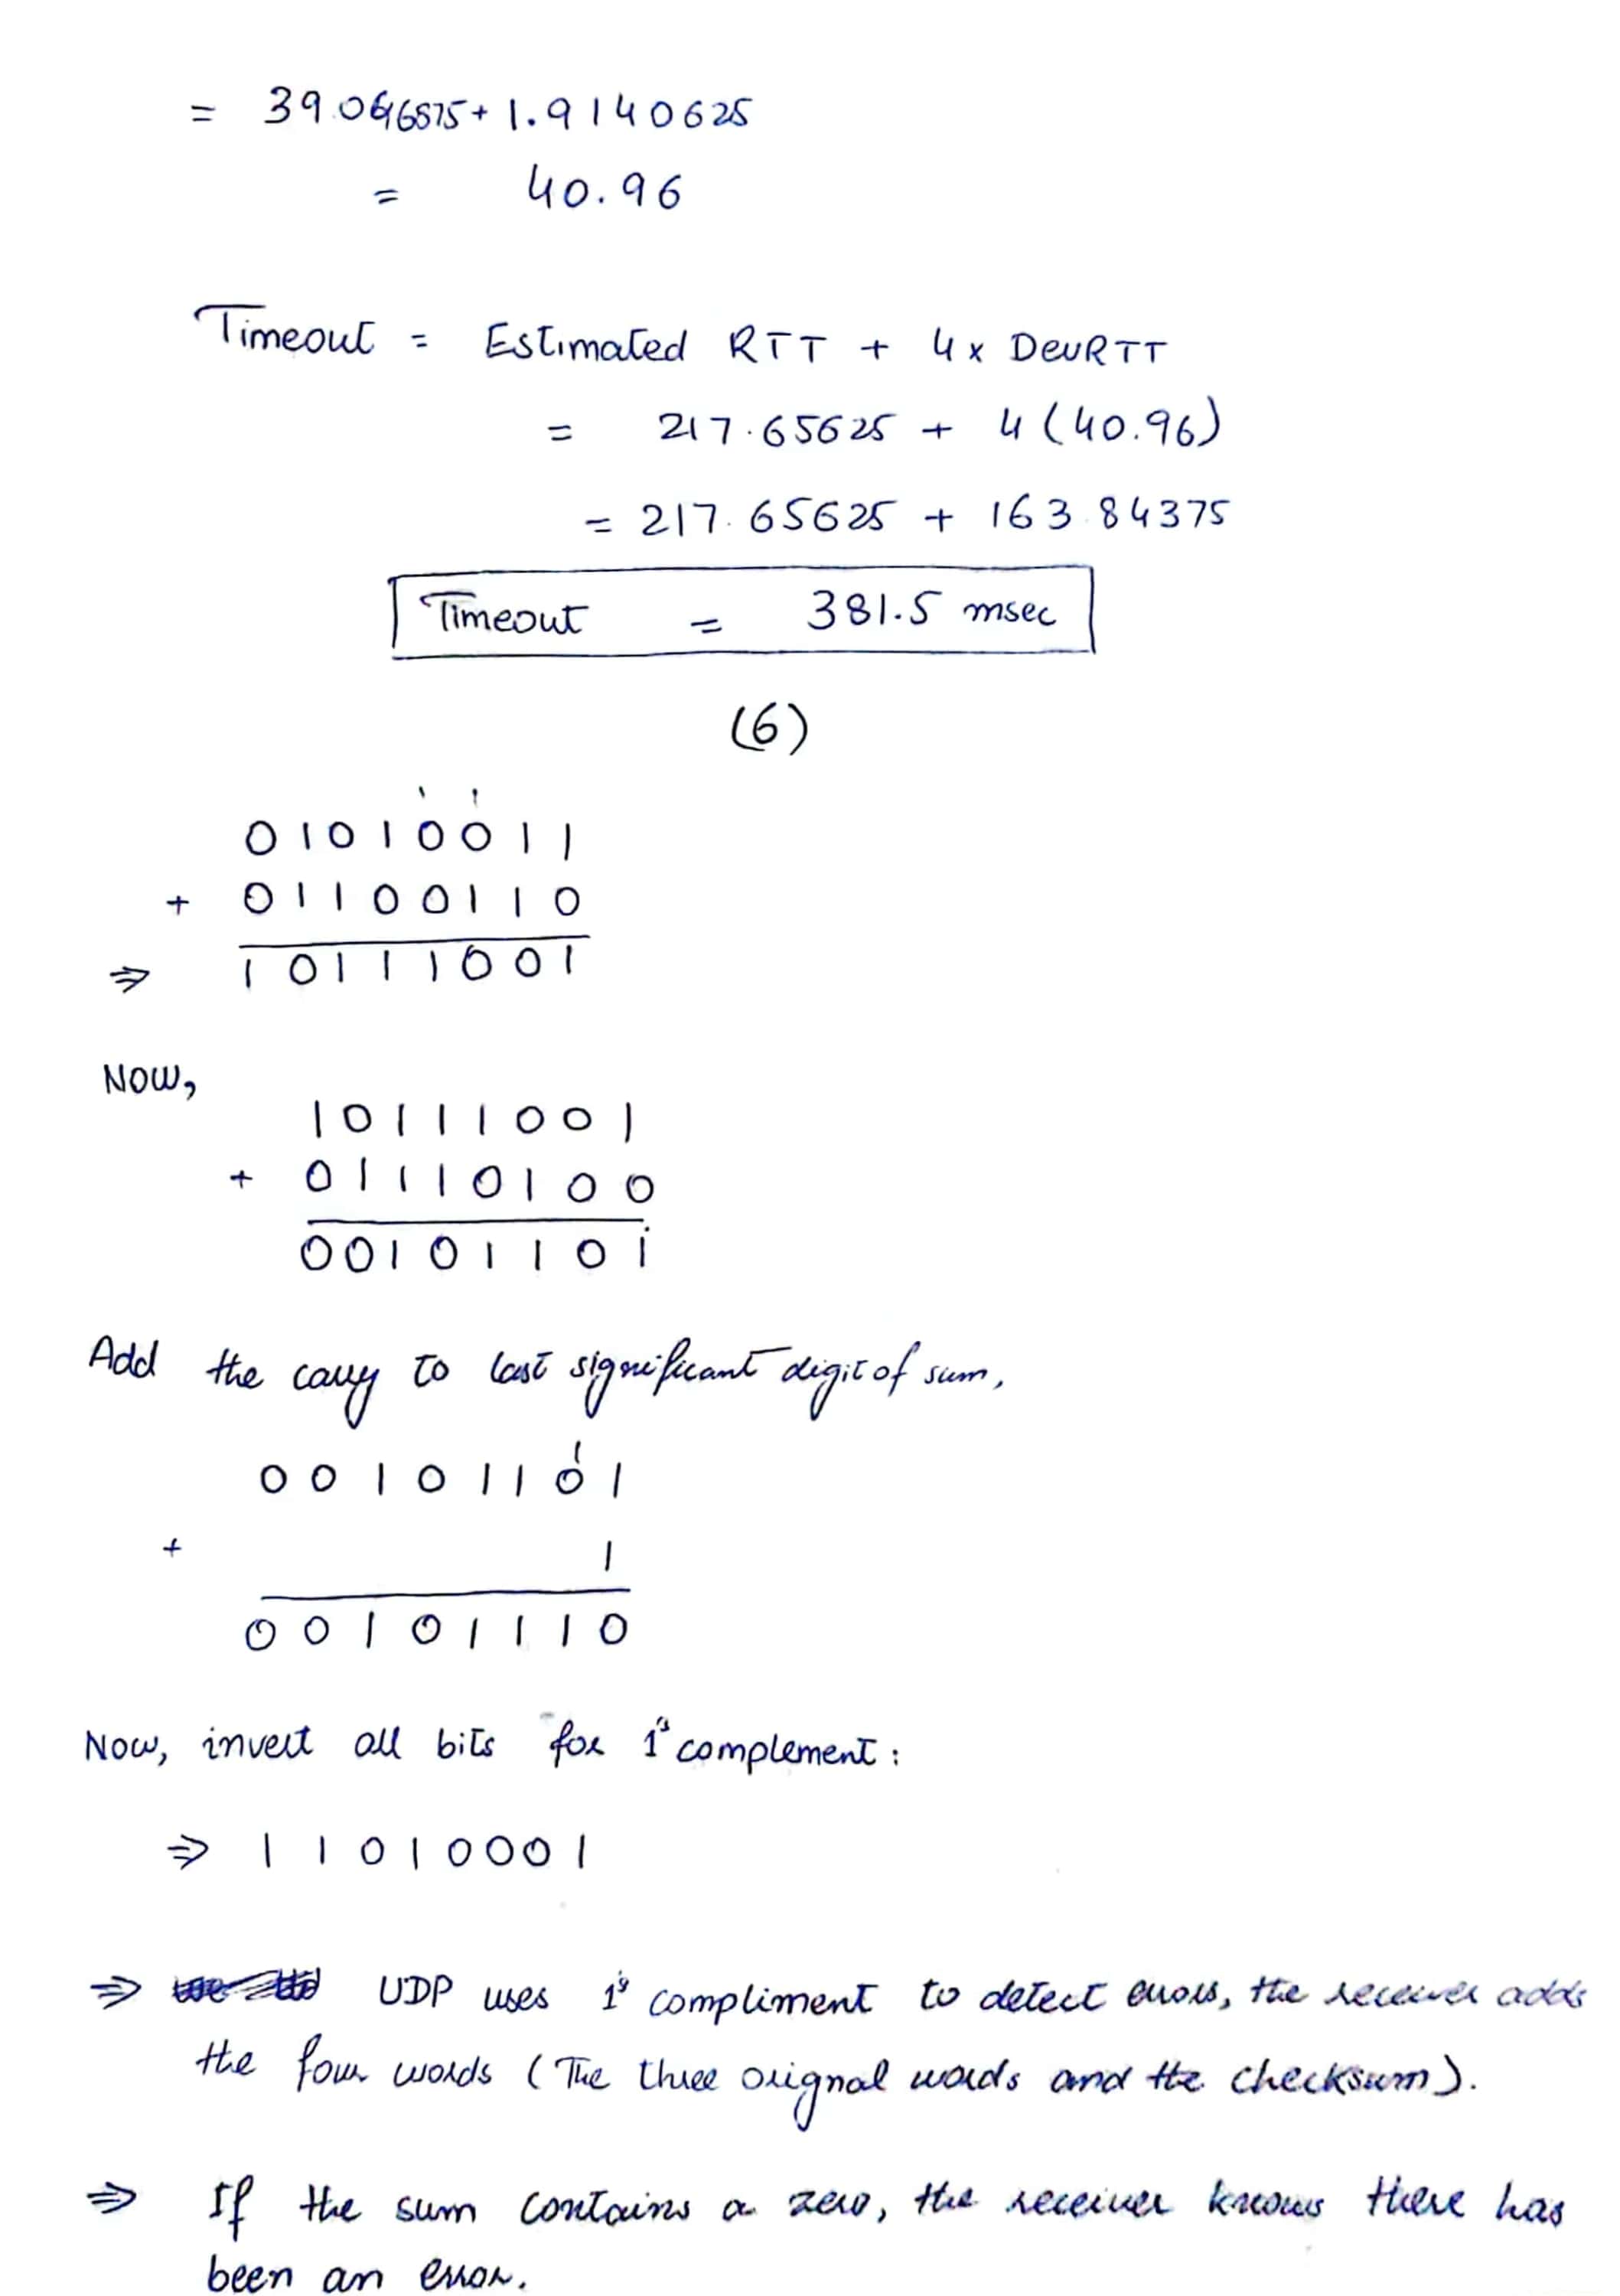 = 39.046875 + 1.9140625
= 40.96
Timeout = Estimated RTT + 4 x DevRTT
= 217.65625 + 4 (40.96)
= 217.65625 + 163.84375
Timeout = 381.5 msec
(6)
1 1
0 1 0 1 0 0 1 1
+ 0 1 1 0 0 1 1 0
⇒ 1 0 1 1 1 0 0 1
Now,
1 0 1 1 1 0 0 1
+ 0 1 1 1 0 1 0 0
0 0 1 0 1 1 0 1
Add the carry to last significant digit of sum,
1
0 0 1 0 1 1 0 1
+ 1
0 0 1 0 1 1 1 0
Now, invert all bits for 1's complement :
⇒ 1 1 0 1 0 0 0 1
⇒ UDP uses 1's compliment to detect errors, the receiver adds
the four words (The three orignal words and the checksum).
⇒ If the sum contains a zero, the receiver knows there has
been an error.